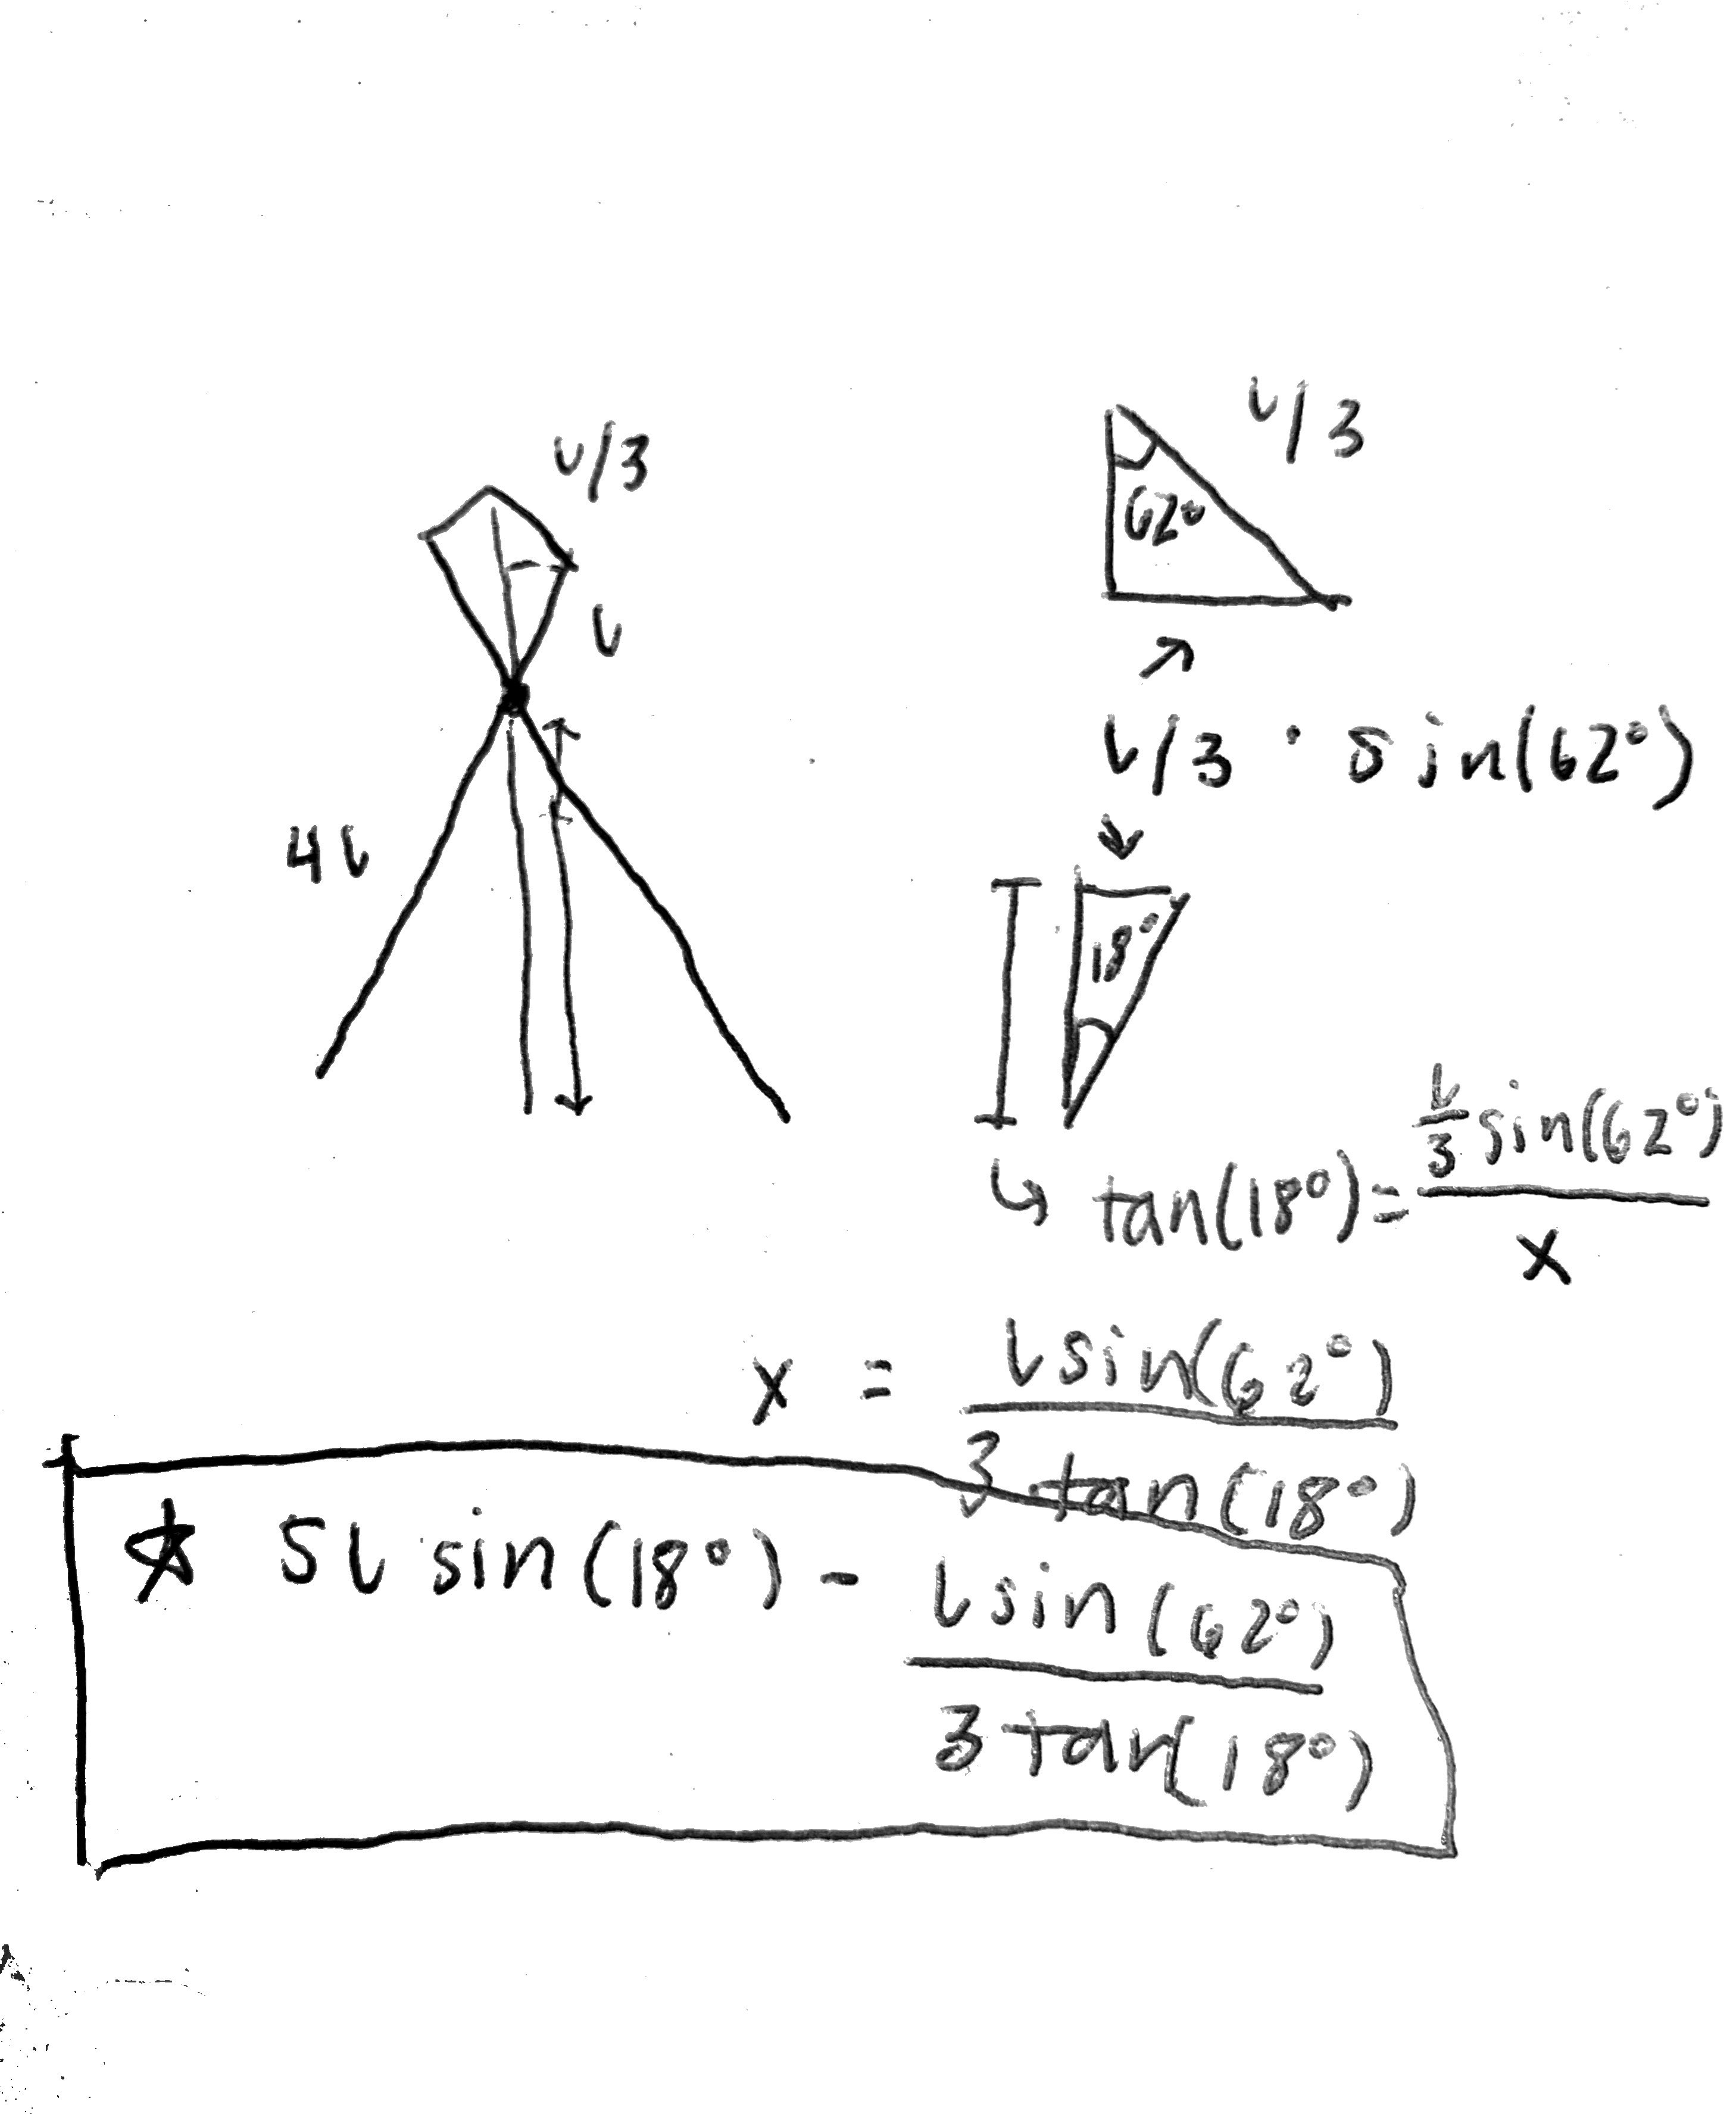 L/3
L
4L
L/3
62°
L/3 · sin(62°)
18°
tan(18°) = L/3 sin(62°) / x
x = L sin(62°) / 3 tan(18°)
☆ 5L sin(18°) - L sin(62°) / 3 tan(18°)